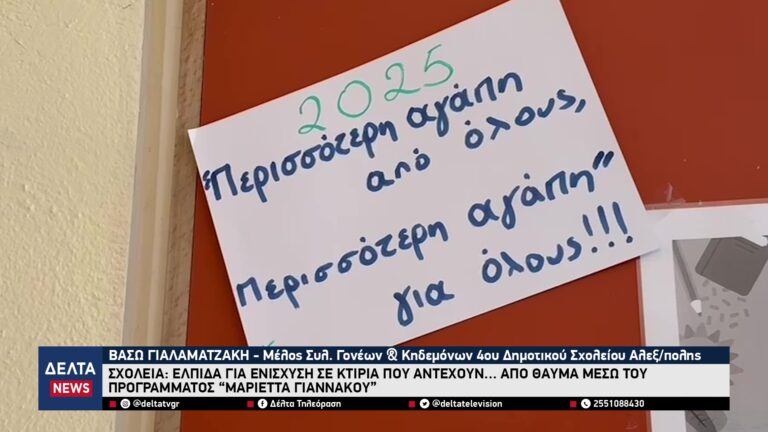 2025
“Περισσότερη αγάπη
από όλους,
Περισσότερη αγάπη”
για όλους!!!
ΔΕΛΤΑ
NEWS
ΒΑΣΩ ΓΙΑΛΑΜΑΤΖΑΚΗ – Μέλος Συλ. Γονέων & Κηδεμόνων 4ου Δημοτικού Σχολείου Αλεξ/πολης
ΣΧΟΛΕΙΑ: ΕΛΠΙΔΑ ΓΙΑ ΕΝΙΣΧΥΣΗ ΣΕ ΚΤΙΡΙΑ ΠΟΥ ΑΝΤΕΧΟΥΝ... ΑΠΟ ΘΑΥΜΑ ΜΕΣΩ ΤΟΥ
ΠΡΟΓΡΑΜΜΑΤΟΣ “ΜΑΡΙΕΤΤΑ ΓΙΑΝΝΑΚΟΥ”
@deltatvgr
Δέλτα Τηλεόραση
@deltatelevision
2551088430